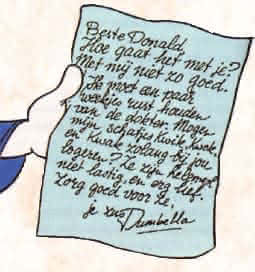 Beste Donald,
Hoe gaat het met je?
Met mij niet zo goed.
Ik moet een paar
weekjes rust houden
van de dokter. Mogen
mijn schatjes Kwik, Kwek
en Kwak zolang bij jou
logeren? Ze zijn helemaal
niet lastig, en erg lief.
Zorg goed voor ze!
je zus
Dumbella